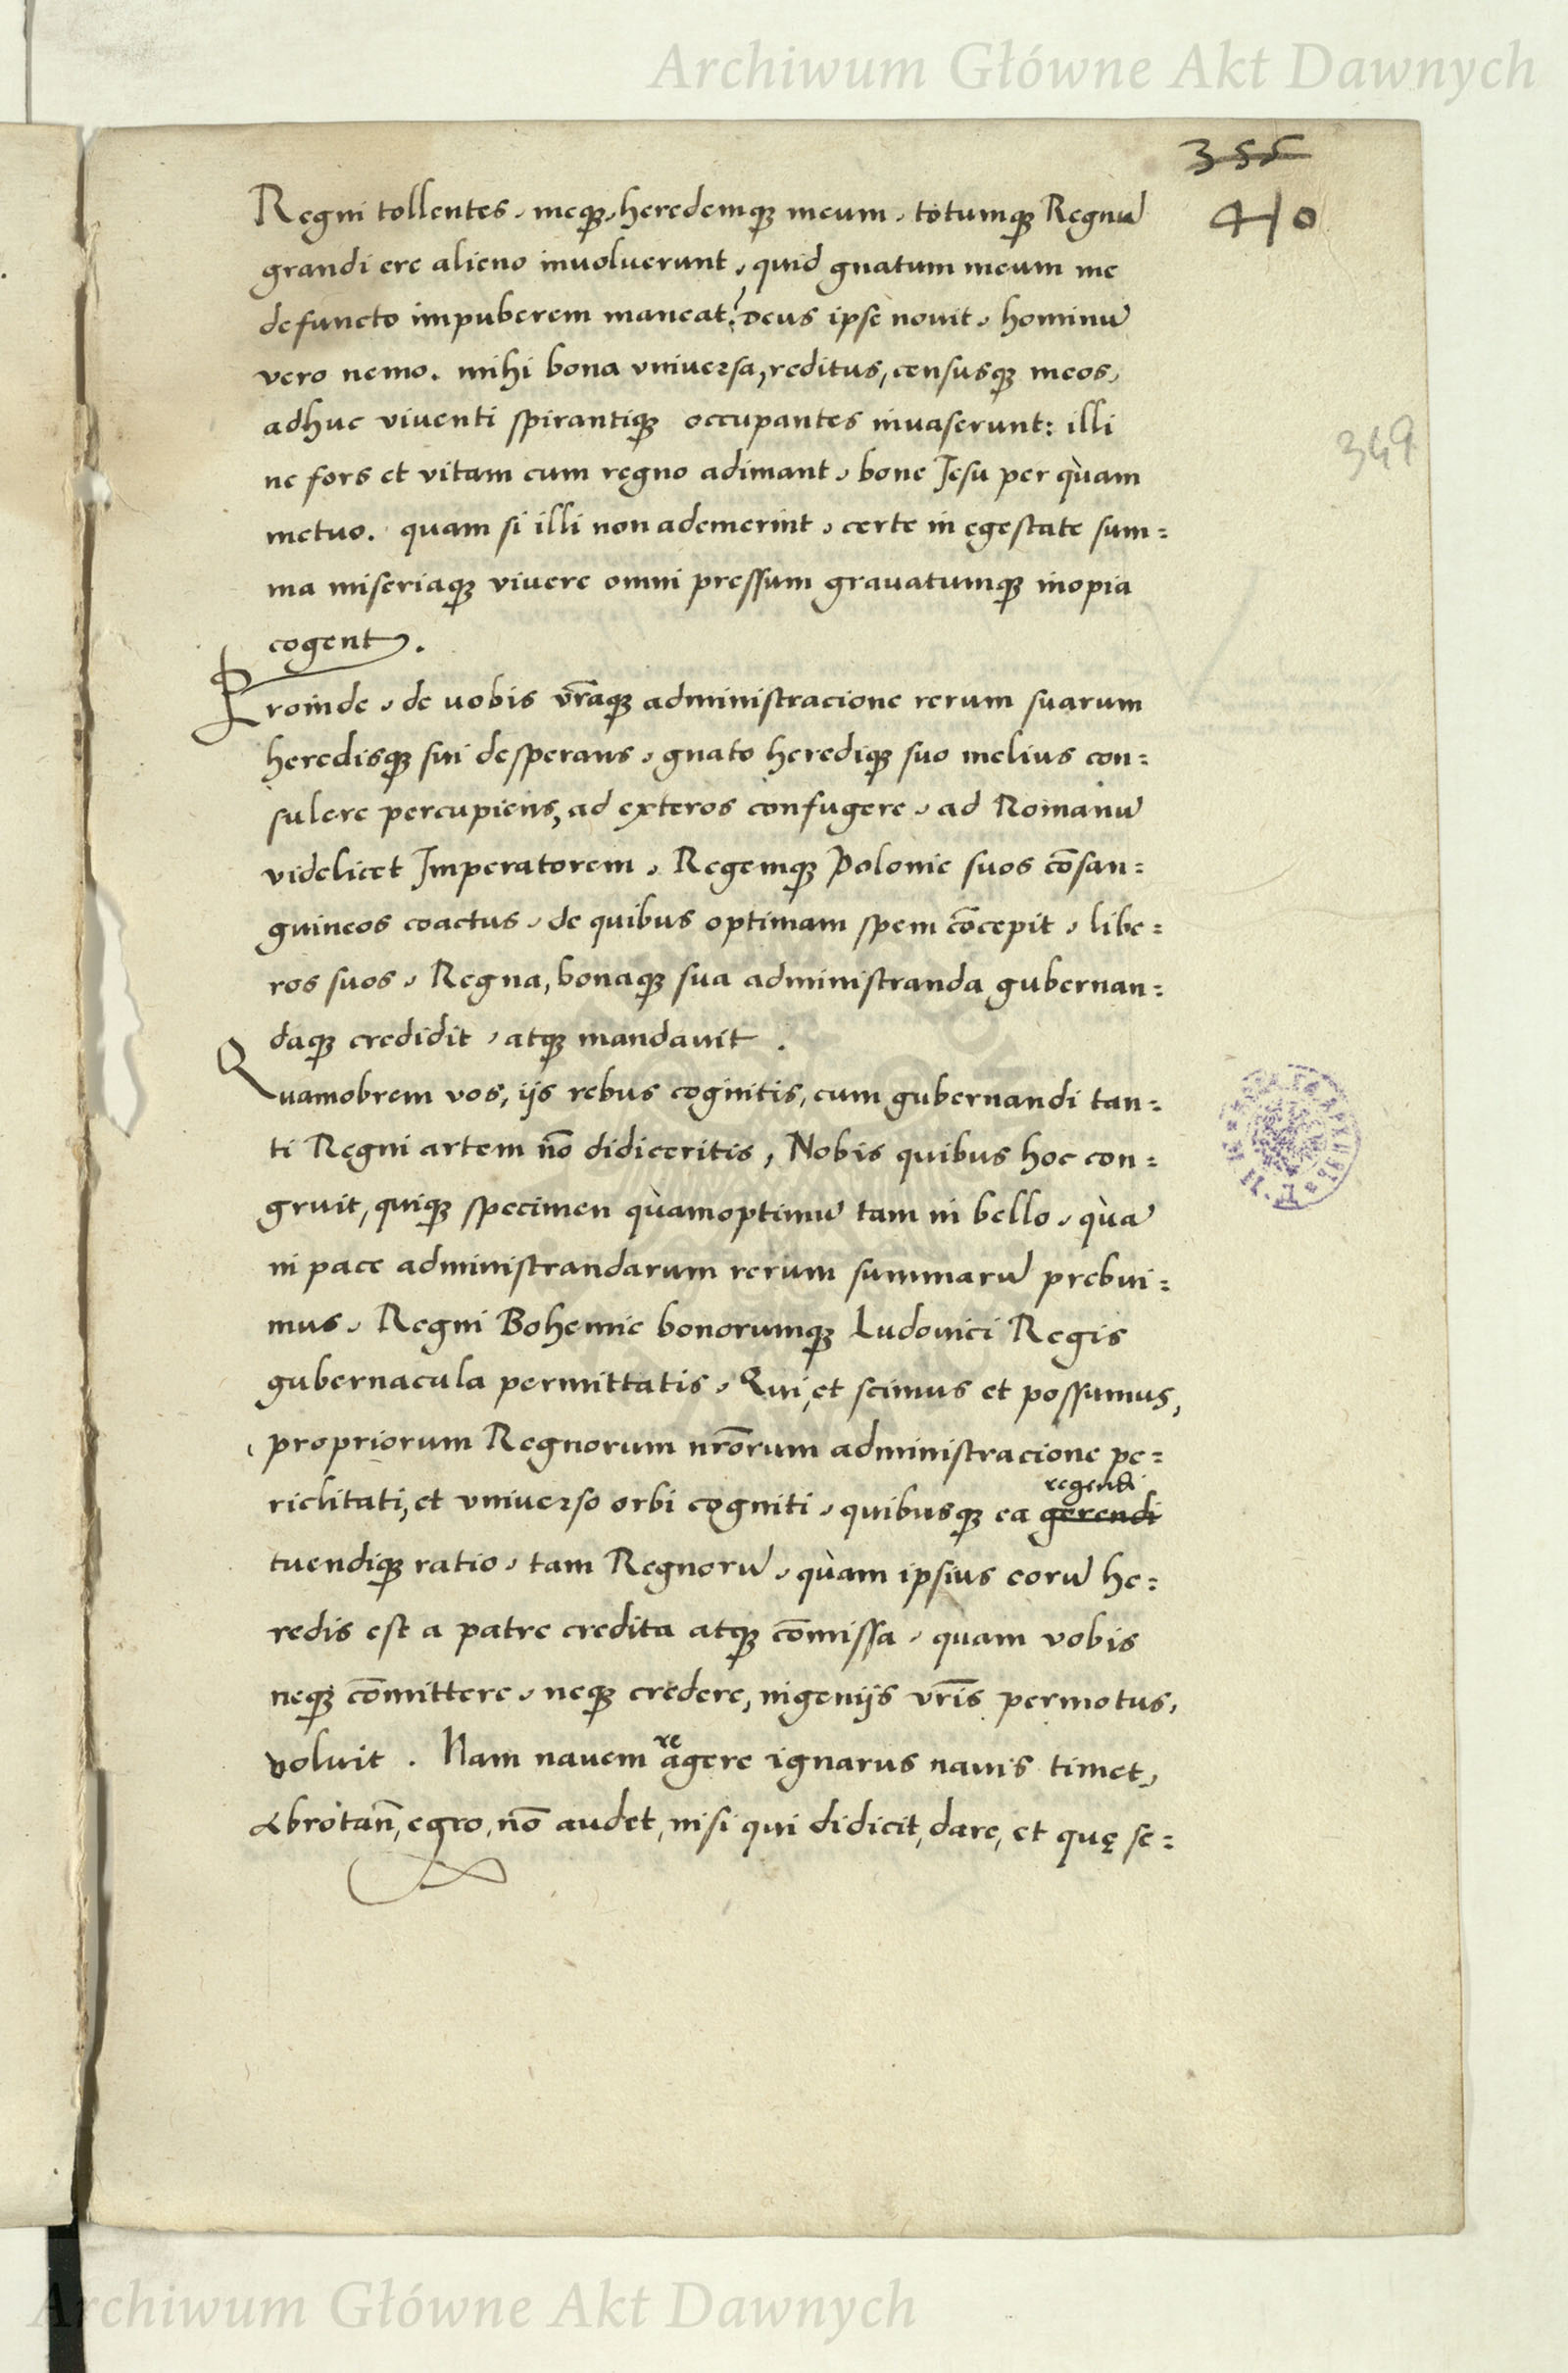 Archiwum Główne Akt Dawnych
355
410
Regni tollentes, meqꝫ, heredemqꝫ meum, totumqꝫ Regnū
grandi ere alieno inuoluerunt, quid gnatum meum me
defuncto impuberem maneat? deus ipse nouit, hominū
vero nemo. mihi bona vniuersa, reditus, censusqꝫ meos,
adhuc viuenti spirantiqꝫ occupantes inuaserunt: illi
ne fors et vitam cum regno adimant, bone Jesu per quàm
349
metuo. quam si illi non ademerint, certe in egestate sum=
ma miseriaqꝫ viuere omni pressum grauatumqꝫ inopia
cogent.
Proinde, de uobis vr̃aqꝫ administracione rerum suarum
heredisqꝫ sui desperans, gnato herediqꝫ suo melius con=
sulere percupiens, ad exteros confugere, ad Romanū
videlicet Imperatorem, Regemqꝫ Polonie suos cōsan=
guineos coactus, de quibus optimam spem cōcepit, libe=
ros suos, Regna, bonaqꝫ sua administranda gubernan=
daqꝫ credidit, atqꝫ mandauit.
Quamobrem vos, iis rebus cognitis, cum gubernandi tan=
ti Regni artem nō didiceritis, Nobis quibus hoc con=
gruit, quiqꝫ specimen quàmoptimū tam in bello, quà
in pace administrandarum rerum summarū prebui=
mus, Regni Bohemie bonorumqꝫ Ludouici Regis
gubernacula permittatis, Qui, et scimus et possumus,
propriorum Regnorum nr̄orum administracione pe=
riclitati, et vniuerso orbi cogniti, quibusqꝫ ea gerendi
regendi
tuendiqꝫ ratio, tam Regnorū, quàm ipsius eorū he=
redis est a patre credita atqꝫ cōmissa, quam vobis
neqꝫ cōmittere, neqꝫ credere, ingeniis vr̄is permotus,
voluit. Nam nauem reagere ignarus nauis timet,
Abrotan̄, egro, nō audet, nisi qui didicit, dare, et quę se=
Archiwum Główne Akt Dawnych